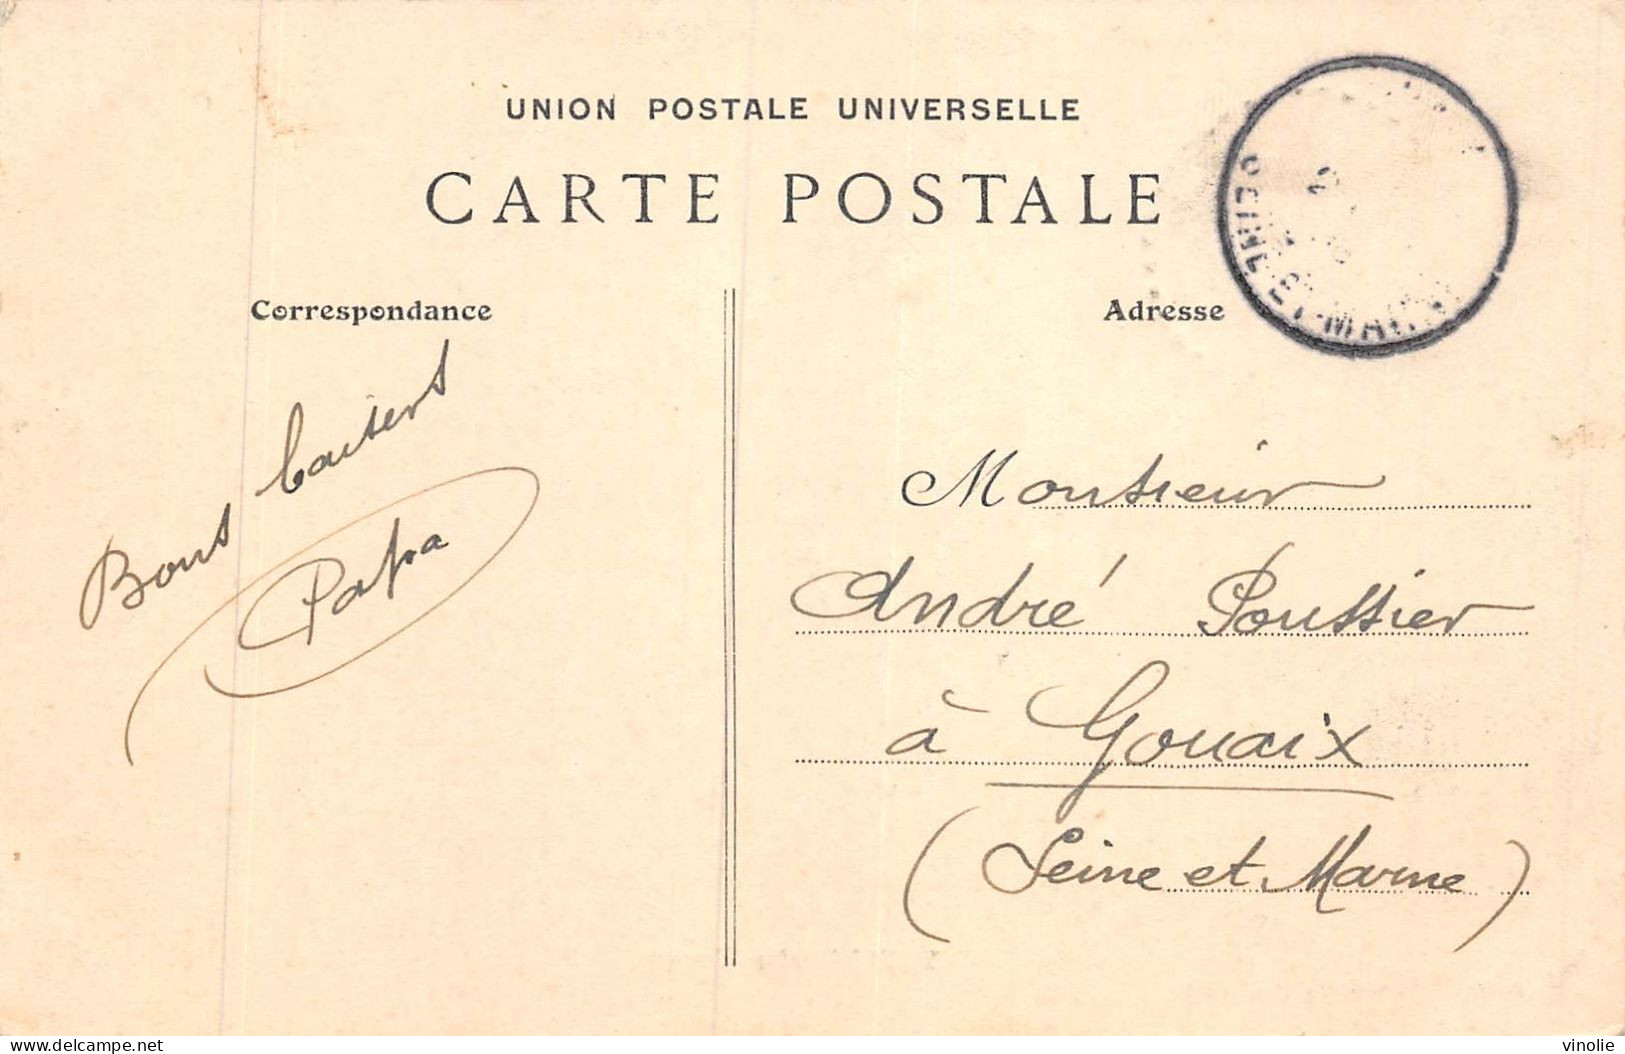 UNION POSTALE UNIVERSELLE
CARTE POSTALE
SEINE-ET-MARNE
Correspondance
Adresse
Bons baisers
Papa
Monsieur
André Poussier
à Gouaix
(Seine et Marne)
delcampe.net
vinolie